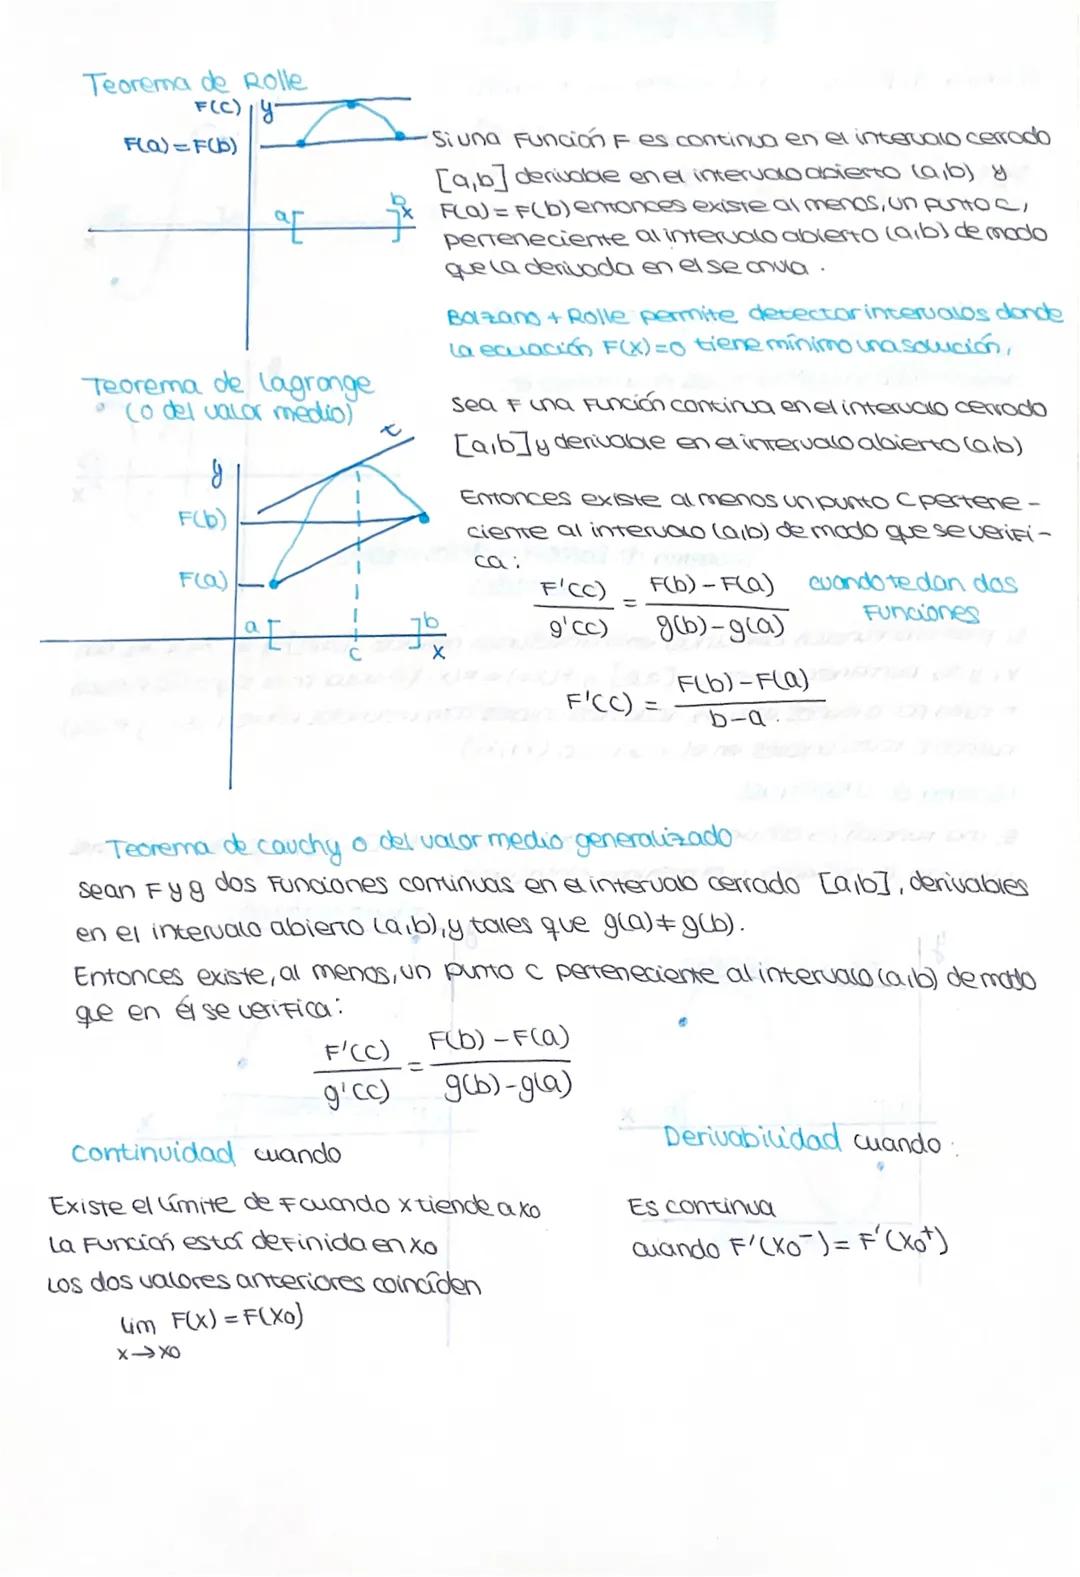 Teorema de Rolle
F(c) y
F(a)=F(b)
a[ ]b x
Si una Función F es continua en el intervalo cerrado
[a,b] derivable en el intervalo abierto (a,b) y
F(a) = F(b) entonces existe al menos, un punto c,
perteneciente al intervalo abierto (a,b) de modo
que la derivada en el se anula.
Bolzano + Rolle permite detectar intervalos donde
la ecuación F(x)=0 tiene mínimo una solución,
Teorema de lagrange
(o del valor medio)
t
y
F(b)
F(a)
a [ ]b
c x
Sea F una Función continua en el intervalo cerrado
[a,b] y derivable en el intervalo abierto (a,b)
Entonces existe al menos un punto C pertene-
ciente al intervalo (a,b) de modo que se verifi-
ca:
F'(c) / g'(c) = F(b) - F(a) / g(b)-g(a) cuando te dan dos
Funciones
F'(c) = F(b)-F(a) / b-a.
Teorema de cauchy o del valor medio generalizado
Sean F y g dos Funciones continuas en el intervalo cerrado [a,b], derivables
en el intervalo abierto (a,b), y tales que g(a)≠g(b).
Entonces existe, al menos, un punto c perteneciente al intervalo (a,b) de modo
que en él se verifica:
F'(c) / g'(c) = F(b) - F(a) / g(b)-g(a)
Continuidad cuando
Existe el límite de F cuando x tiende a x0
La Función está definida en x0
Los dos valores anteriores coinciden
lim F(x) = F(x0)
x→x0
Derivabilidad cuando:
Es continua
cuando F'(x0⁻) = F'(x0⁺)